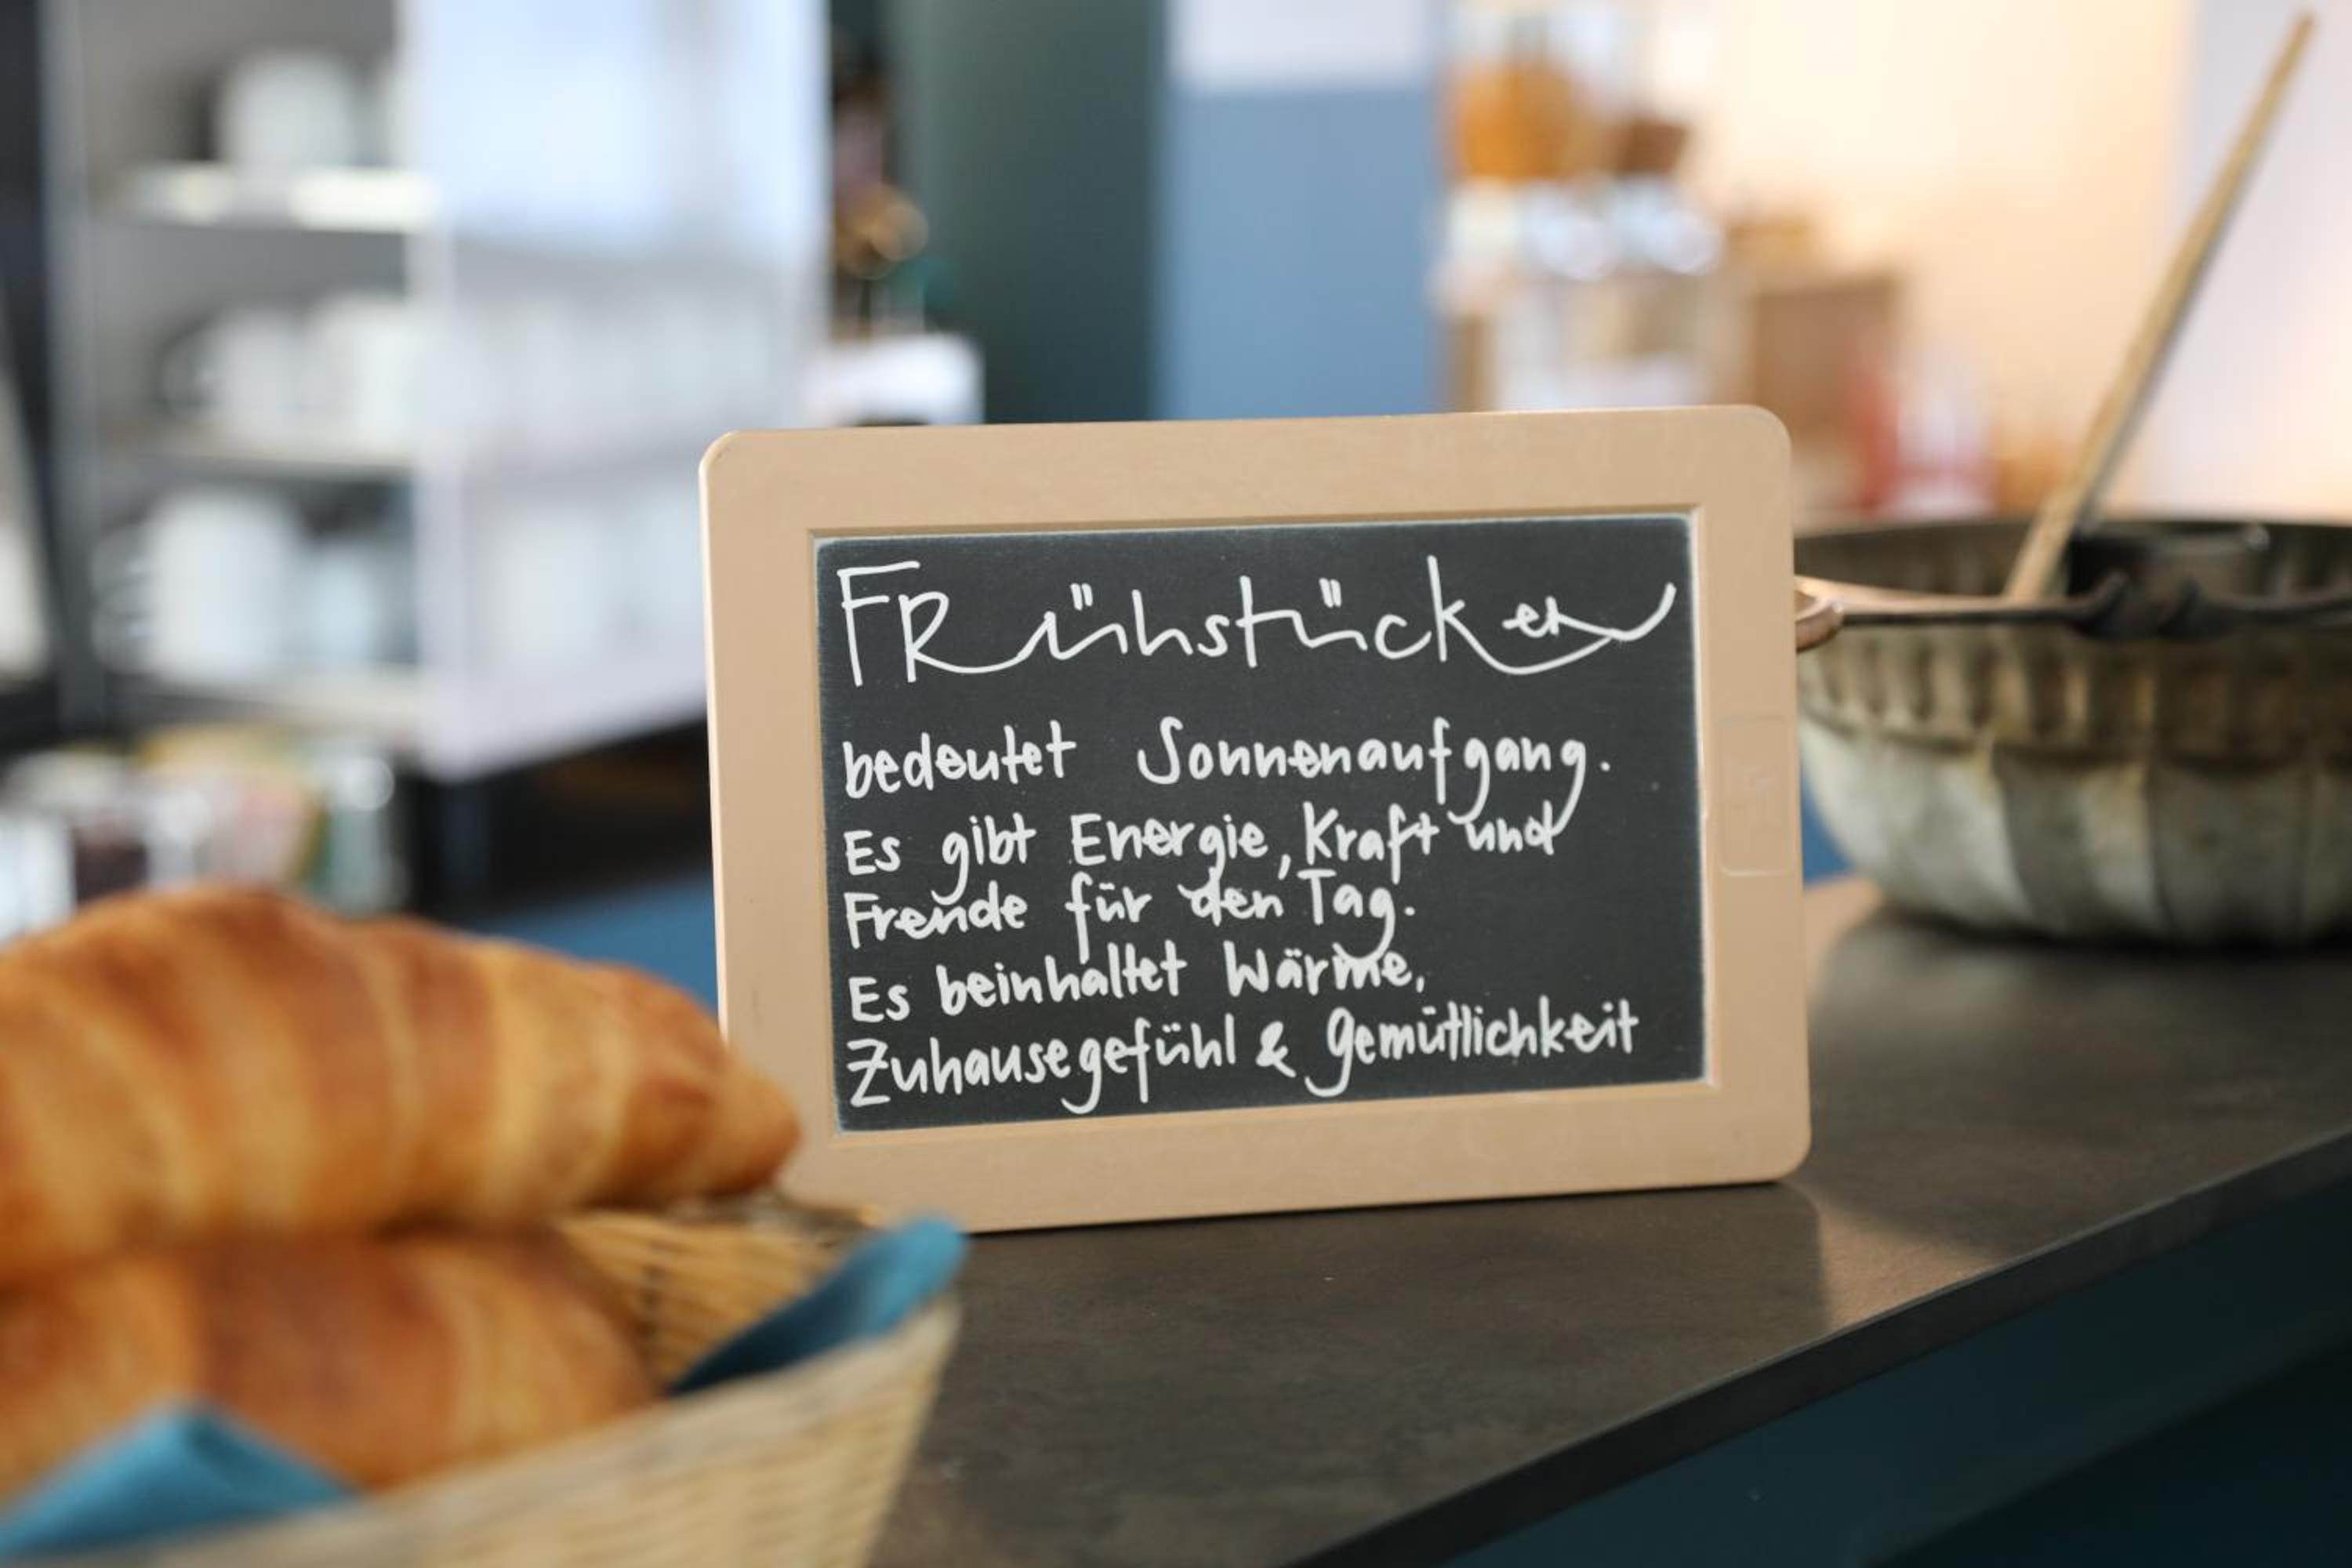 FRühstücken
bedeutet Sonnenaufgang.
Es gibt Energie, Kraft und
Freude für den Tag.
Es beinhaltet Wärme,
Zuhausegefühl & Gemütlichkeit